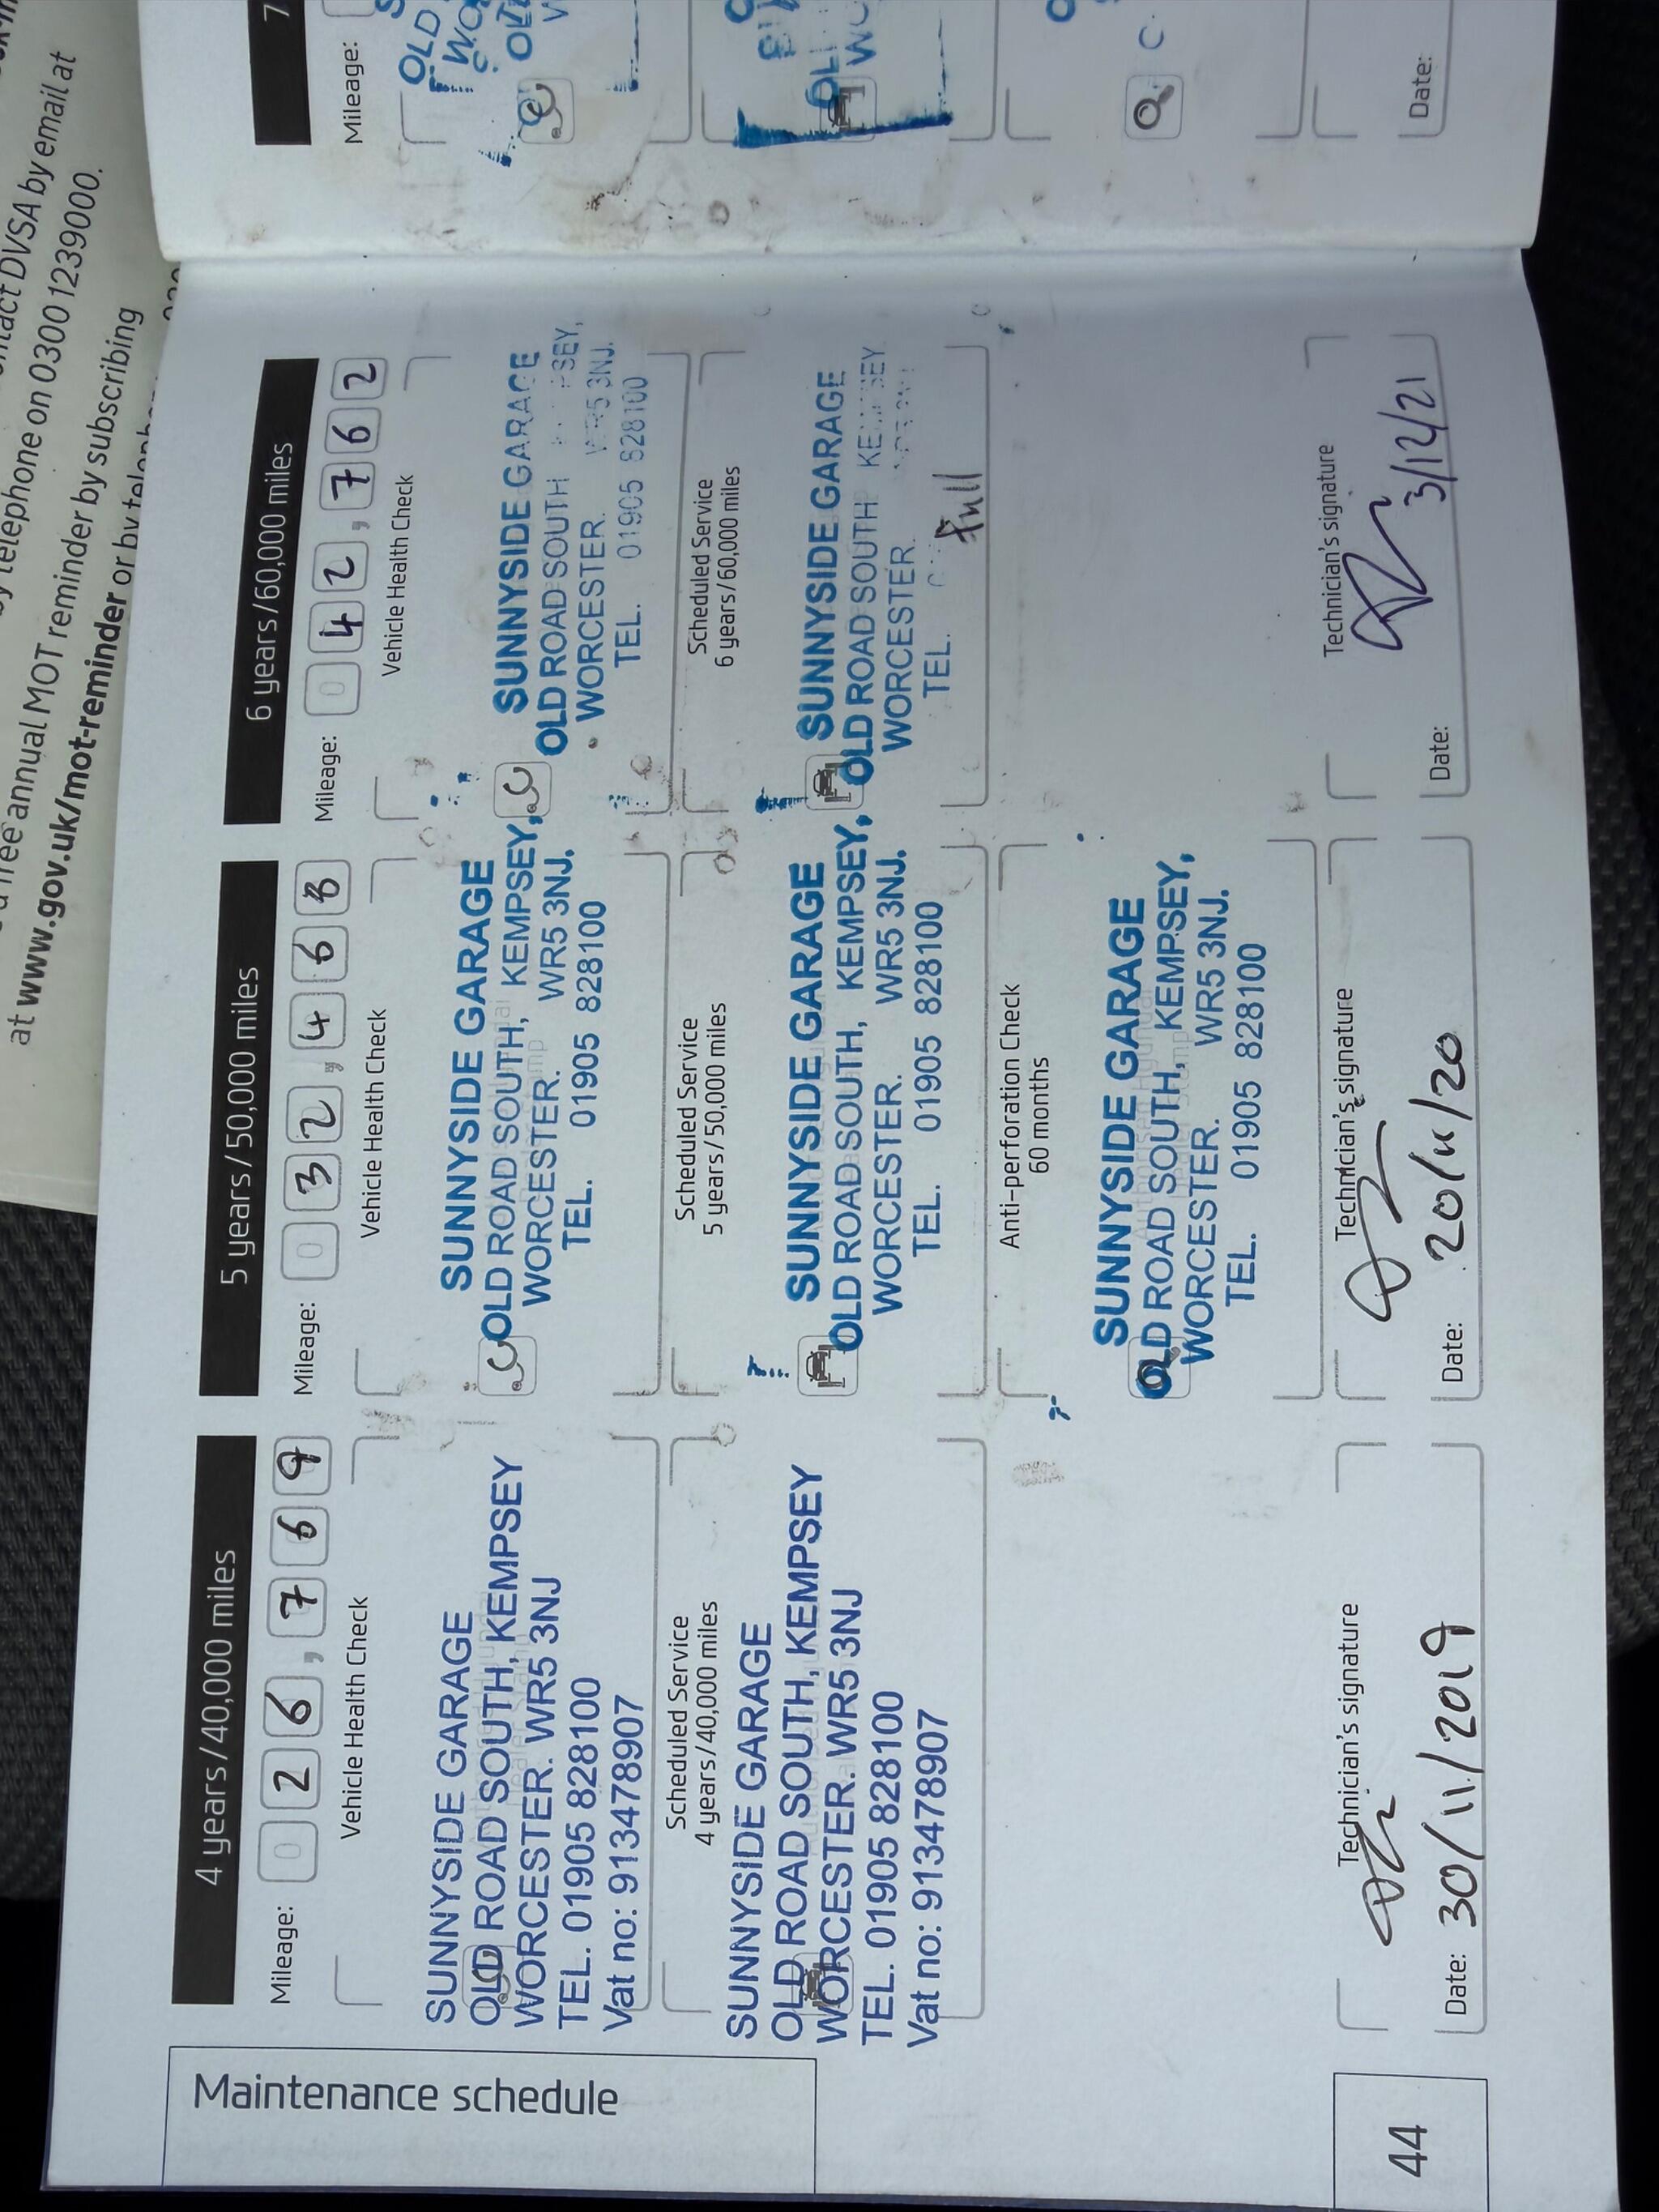 ontact DVSA by email at
by telephone on 0300 1239000.
free annual MOT reminder by subscribing
at www.gov.uk/mot-reminder or by
Maintenance schedule
4 years/40,000 miles
Mileage: 0 2 6 , 7 6 9
Vehicle Health Check
SUNNYSIDE GARAGE
OLD ROAD SOUTH, KEMPSEY
WORCESTER. WR5 3NJ
TEL. 01905 828100
Vat no: 913478907
Scheduled Service
4 years/40,000 miles
SUNNYSIDE GARAGE
OLD ROAD SOUTH, KEMPSEY
WORCESTER. WR5 3NJ
TEL. 01905 828100
Vat no: 913478907
Technician's signature
Date: 30/11/2019
44
5 years/50,000 miles
Mileage: 0 3 2 , 4 6 8
Vehicle Health Check
SUNNYSIDE GARAGE
OLD ROAD SOUTH, KEMPSEY,
WORCESTER. WR5 3NJ.
TEL. 01905 828100
Scheduled Service
5 years/50,000 miles
SUNNYSIDE GARAGE
OLD ROAD SOUTH, KEMPSEY,
WORCESTER. WR5 3NJ.
TEL. 01905 828100
Anti-perforation Check
60 months
SUNNYSIDE GARAGE
OLD ROAD SOUTH, KEMPSEY,
WORCESTER. WR5 3NJ.
TEL. 01905 828100
Technician's signature
Date: 20/11/20
6 years/60,000 miles
Mileage: 0 4 2 , 7 6 2
Vehicle Health Check
SUNNYSIDE GARAGE
OLD ROAD SOUTH
WORCESTER. WR5 3NJ.
TEL. 01905 828100
Scheduled Service
6 years/60,000 miles
SUNNYSIDE GARAGE
OLD ROAD SOUTH KEMPSEY
WORCESTER.
TEL.
Full
Technician's signature
Date: 3/12/21
7
Mileage:
OLD
Date: